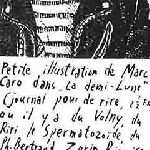 Petite illustration de Marc
Caro dans "La demi-Lune"
(journal pour de rire,
ou il y a du Volny, du
Riri, le Spermatozoïde du
Ph. Bertrand